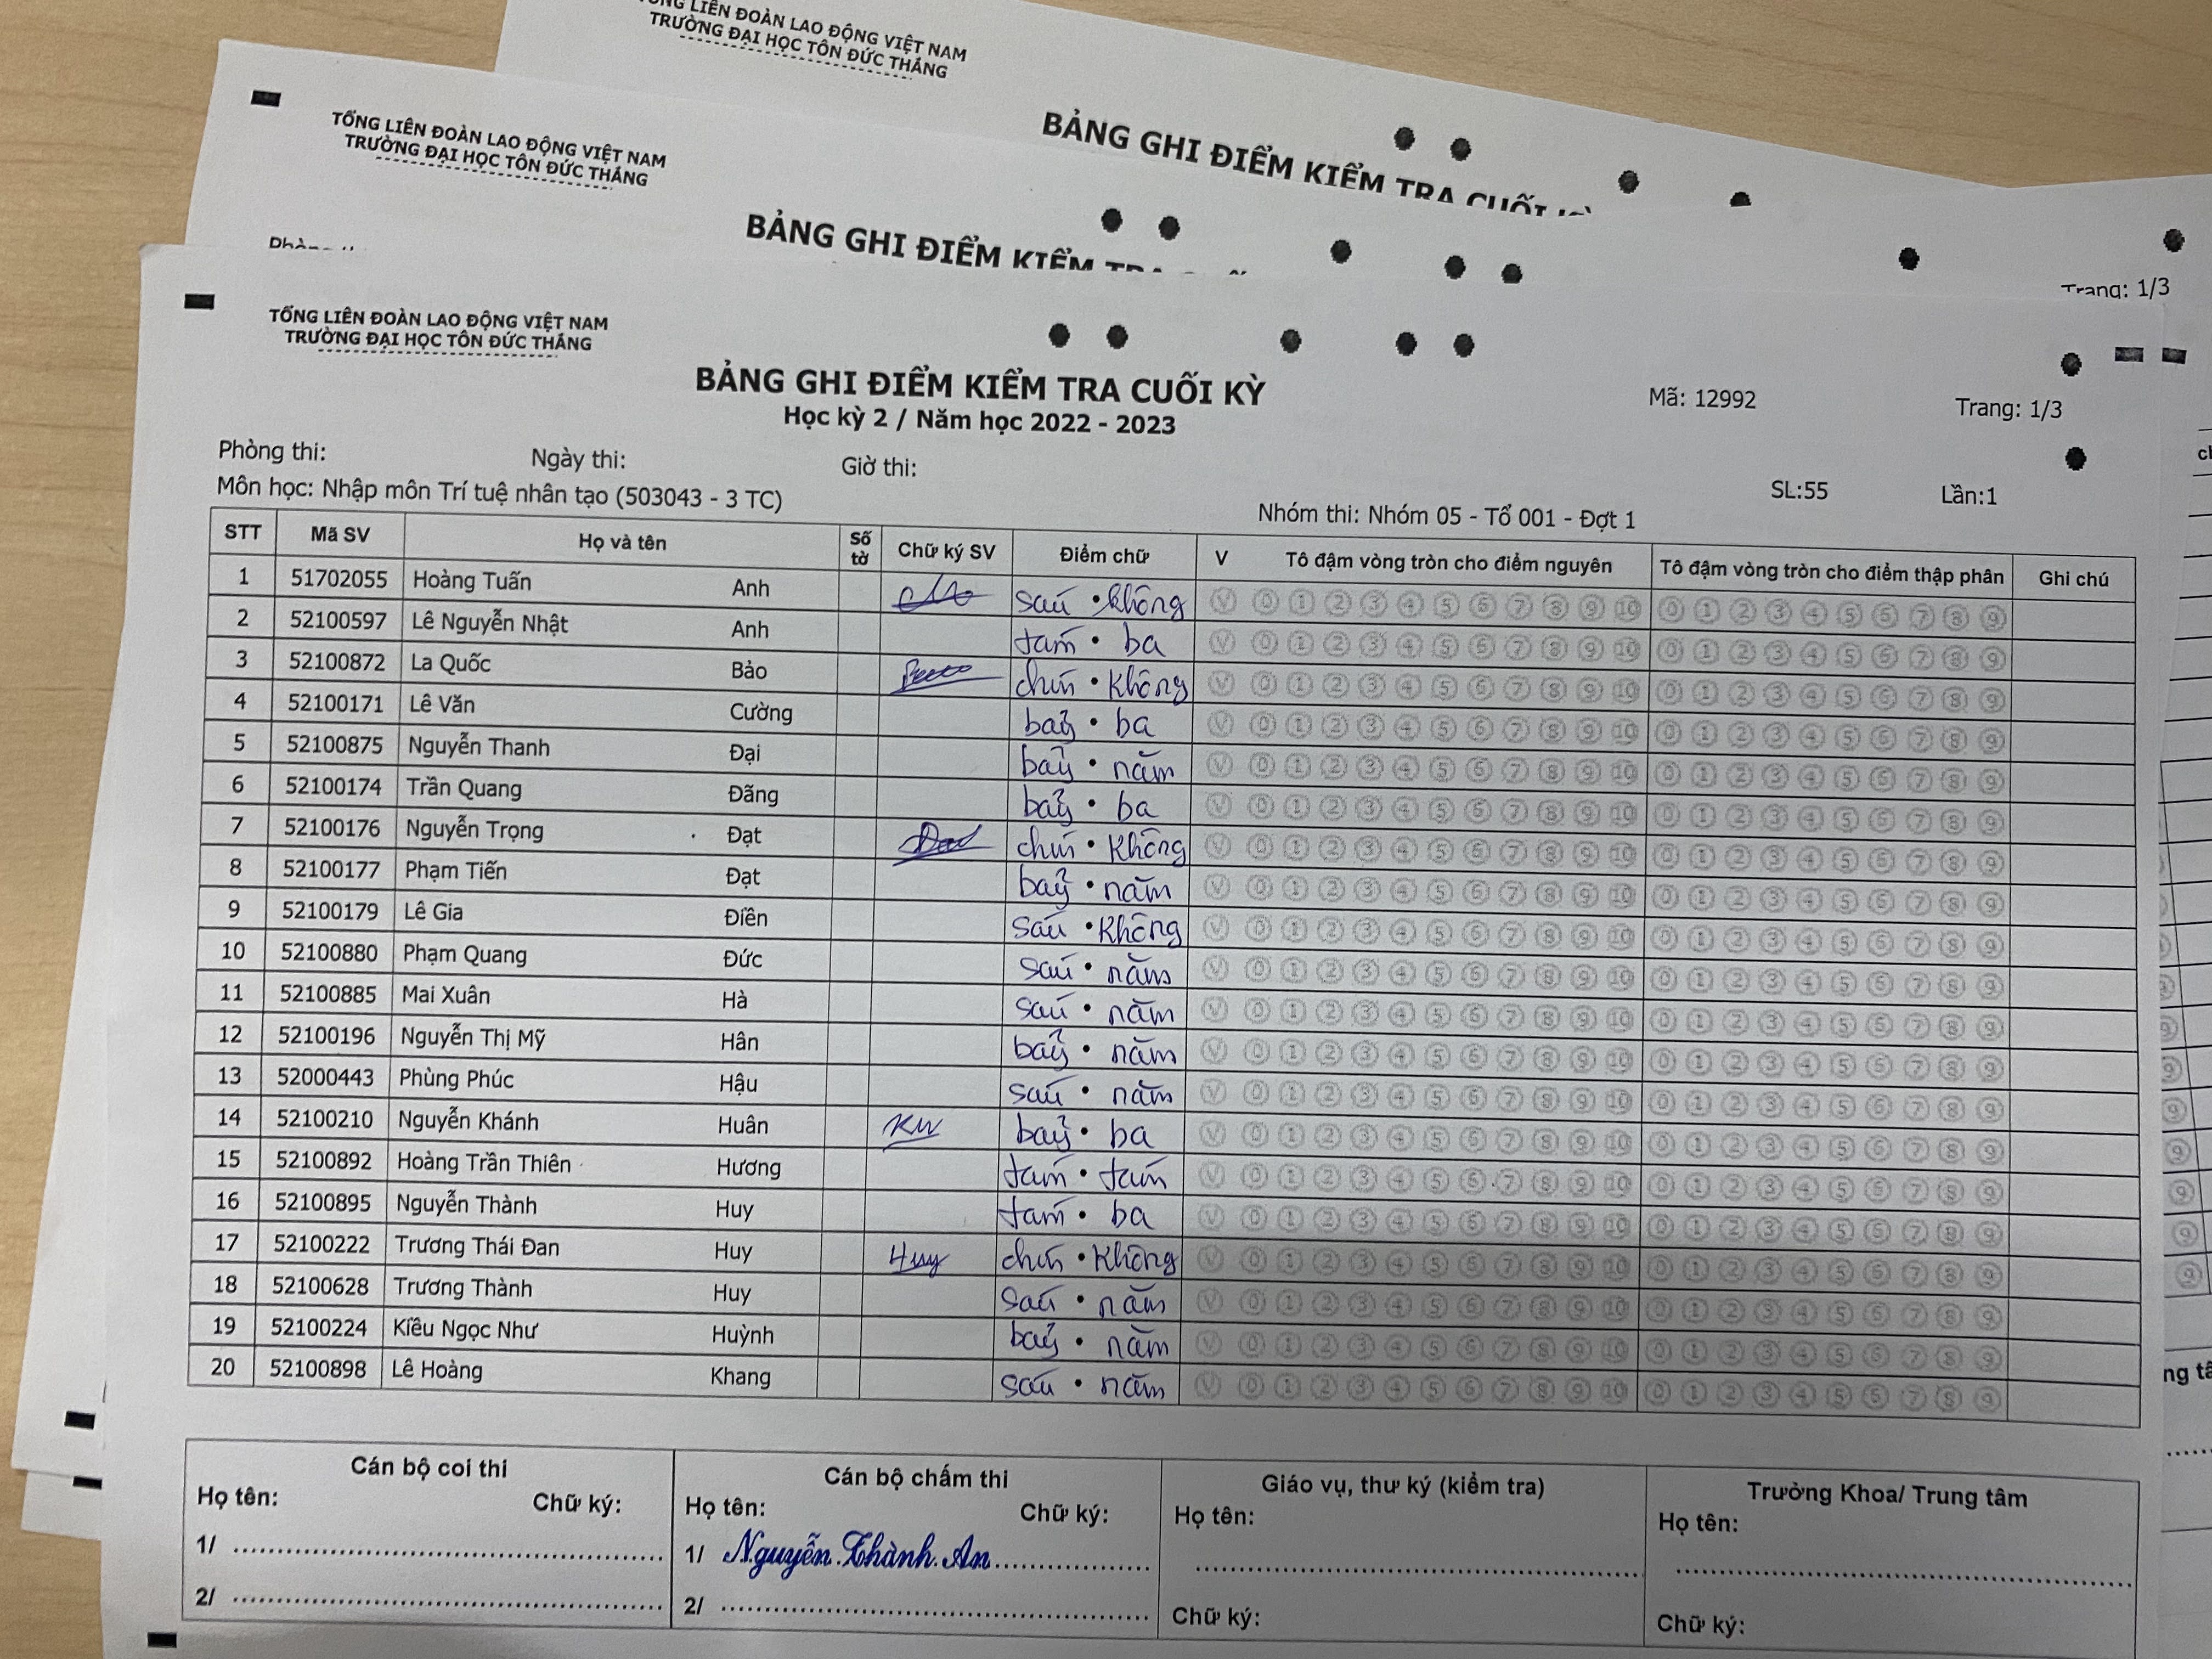 LIÊN ĐOÀN LAO ĐỘNG VIỆT NAM
TRƯỜNG ĐẠI HỌC TÔN ĐỨC THẮNG
BẢNG GHI ĐIỂM KIỂM TRA CUỐI KỲ
Trang: 1/3
TỔNG LIÊN ĐOÀN LAO ĐỘNG VIỆT NAM
TRƯỜNG ĐẠI HỌC TÔN ĐỨC THẮNG
BẢNG GHI ĐIỂM KIỂM TRA CUỐI
TỔNG LIÊN ĐOÀN LAO ĐỘNG VIỆT NAM
TRƯỜNG ĐẠI HỌC TÔN ĐỨC THẮNG
BẢNG GHI ĐIỂM KIỂM TRA CUỐI KỲ
Học kỳ 2 / Năm học 2022 - 2023
Mã: 12992 Trang: 1/3
Phòng thi: Ngày thi: Giờ thi:
Môn học: Nhập môn Trí tuệ nhân tạo (503043 - 3 TC) Nhóm thi: Nhóm 05 - Tổ 001 - Đợt 1 SL:55 Lần:1
STT Mã SV Họ và tên Số tờ Chữ ký SV Điểm chữ V Tô đậm vòng tròn cho điểm nguyên Tô đậm vòng tròn cho điểm thập phân Ghi chú
1 51702055 Hoàng Tuấn Anh sáu • không V 0 1 2 3 4 5 6 7 8 9 10 0 1 2 3 4 5 6 7 8 9
2 52100597 Lê Nguyễn Nhật Anh tám • ba V 0 1 2 3 4 5 6 7 8 9 10 0 1 2 3 4 5 6 7 8 9
3 52100872 La Quốc Bảo chín • không V 0 1 2 3 4 5 6 7 8 9 10 0 1 2 3 4 5 6 7 8 9
4 52100171 Lê Văn Cường bảy • ba V 0 1 2 3 4 5 6 7 8 9 10 0 1 2 3 4 5 6 7 8 9
5 52100875 Nguyễn Thanh Đại bảy • năm V 0 1 2 3 4 5 6 7 8 9 10 0 1 2 3 4 5 6 7 8 9
6 52100174 Trần Quang Đãng bảy • ba V 0 1 2 3 4 5 6 7 8 9 10 0 1 2 3 4 5 6 7 8 9
7 52100176 Nguyễn Trọng Đạt Đạt chín • không V 0 1 2 3 4 5 6 7 8 9 10 0 1 2 3 4 5 6 7 8 9
8 52100177 Phạm Tiến Đạt bảy • năm V 0 1 2 3 4 5 6 7 8 9 10 0 1 2 3 4 5 6 7 8 9
9 52100179 Lê Gia Điền sáu • không V 0 1 2 3 4 5 6 7 8 9 10 0 1 2 3 4 5 6 7 8 9
10 52100880 Phạm Quang Đức sáu • năm V 0 1 2 3 4 5 6 7 8 9 10 0 1 2 3 4 5 6 7 8 9
11 52100885 Mai Xuân Hà sáu • năm V 0 1 2 3 4 5 6 7 8 9 10 0 1 2 3 4 5 6 7 8 9
12 52100196 Nguyễn Thị Mỹ Hân bảy • năm V 0 1 2 3 4 5 6 7 8 9 10 0 1 2 3 4 5 6 7 8 9
13 52000443 Phùng Phúc Hậu sáu • năm V 0 1 2 3 4 5 6 7 8 9 10 0 1 2 3 4 5 6 7 8 9
14 52100210 Nguyễn Khánh Huân bảy • ba V 0 1 2 3 4 5 6 7 8 9 10 0 1 2 3 4 5 6 7 8 9
15 52100892 Hoàng Trần Thiên Hương tám • tám V 0 1 2 3 4 5 6 7 8 9 10 0 1 2 3 4 5 6 7 8 9
16 52100895 Nguyễn Thành Huy tám • ba V 0 1 2 3 4 5 6 7 8 9 10 0 1 2 3 4 5 6 7 8 9
17 52100222 Trương Thái Đan Huy Huy chín • không V 0 1 2 3 4 5 6 7 8 9 10 0 1 2 3 4 5 6 7 8 9
18 52100628 Trương Thành Huy sáu • năm V 0 1 2 3 4 5 6 7 8 9 10 0 1 2 3 4 5 6 7 8 9
19 52100224 Kiều Ngọc Như Huỳnh bảy • năm V 0 1 2 3 4 5 6 7 8 9 10 0 1 2 3 4 5 6 7 8 9
20 52100898 Lê Hoàng Khang sáu • năm V 0 1 2 3 4 5 6 7 8 9 10 0 1 2 3 4 5 6 7 8 9
Cán bộ coi thi Cán bộ chấm thi Giáo vụ, thư ký (kiểm tra) Trưởng Khoa/ Trung tâm
Họ tên: Chữ ký: Họ tên: Chữ ký: Họ tên: Họ tên:
1/ 1/ Nguyễn Thành An
2/ 2/ Chữ ký: Chữ ký: